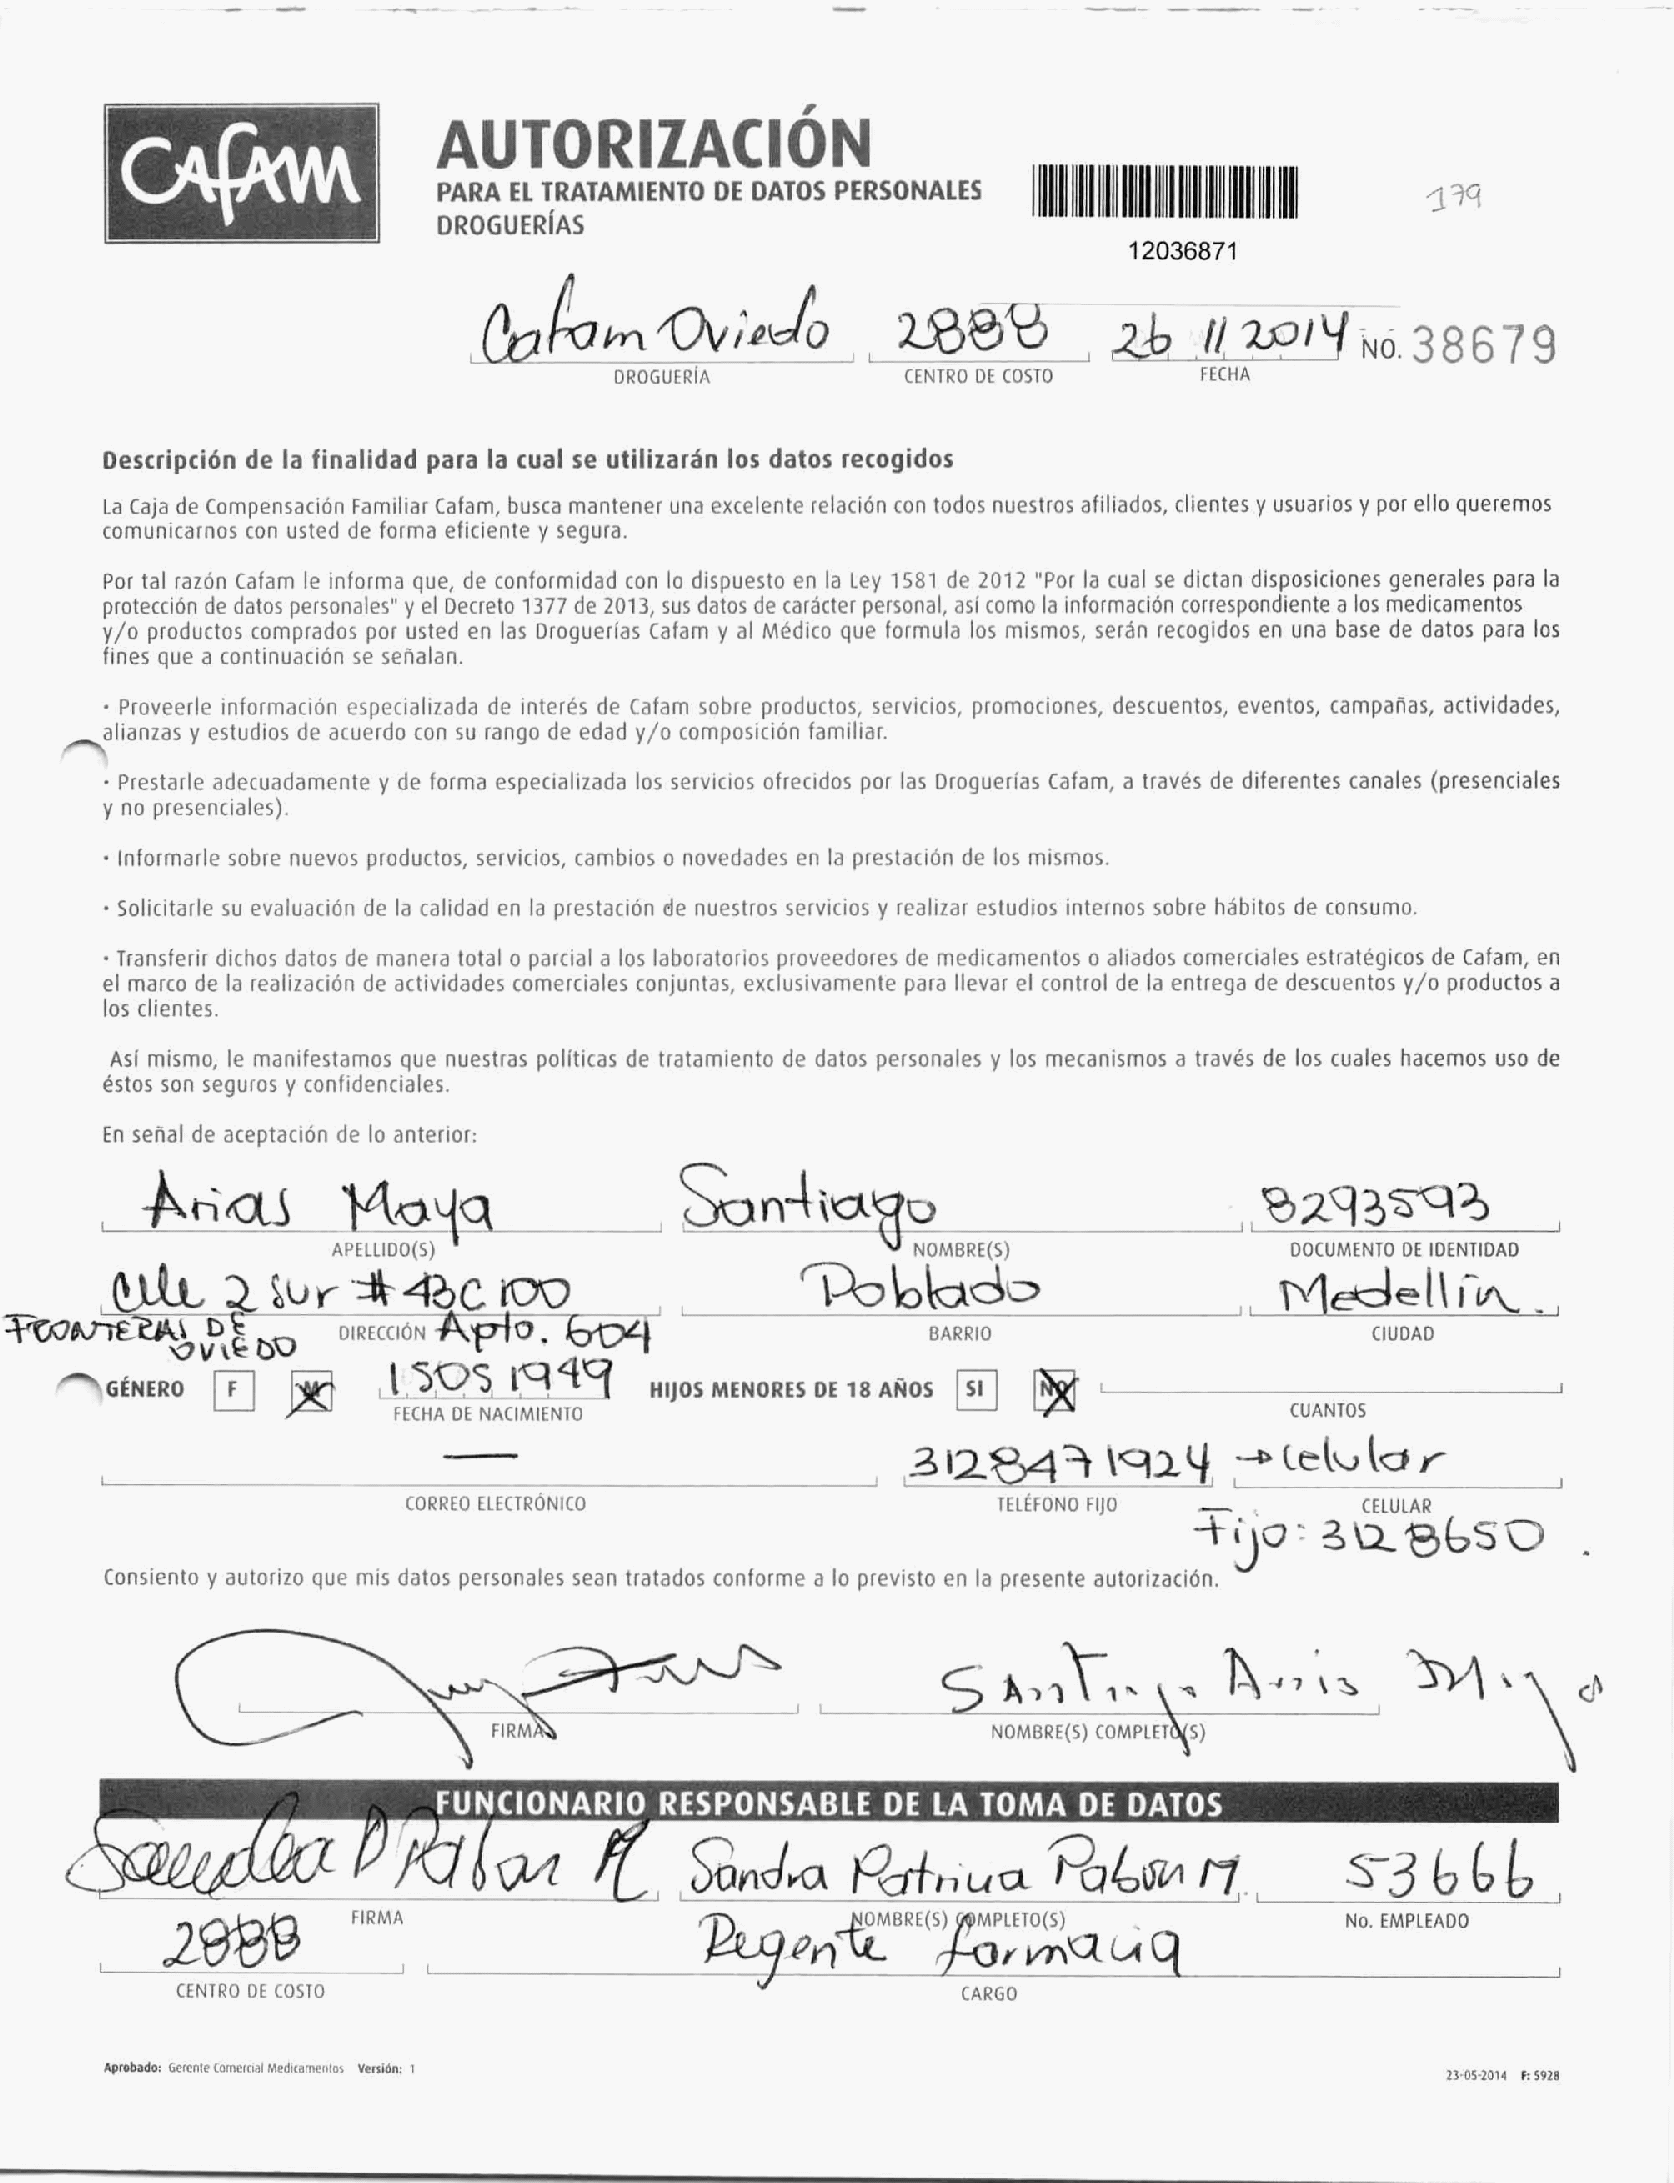 CAFAM
AUTORIZACIÓN
PARA EL TRATAMIENTO DE DATOS PERSONALES
DROGUERÍAS
12036871
179
Cafam Oviedo 2888 26 11 2014 NO. 38679
DROGUERÍA CENTRO DE COSTO FECHA
Descripción de la finalidad para la cual se utilizarán los datos recogidos
La Caja de Compensación Familiar Cafam, busca mantener una excelente relación con todos nuestros afiliados, clientes y usuarios y por ello queremos
comunicarnos con usted de forma eficiente y segura.
Por tal razón Cafam le informa que, de conformidad con lo dispuesto en la Ley 1581 de 2012 "Por la cual se dictan disposiciones generales para la
protección de datos personales" y el Decreto 1377 de 2013, sus datos de carácter personal, así como la información correspondiente a los medicamentos
y/o productos comprados por usted en las Droguerías Cafam y al Médico que formula los mismos, serán recogidos en una base de datos para los
fines que a continuación se señalan.
· Proveerle información especializada de interés de Cafam sobre productos, servicios, promociones, descuentos, eventos, campañas, actividades,
alianzas y estudios de acuerdo con su rango de edad y/o composición familiar.
· Prestarle adecuadamente y de forma especializada los servicios ofrecidos por las Droguerías Cafam, a través de diferentes canales (presenciales
y no presenciales).
· Informarle sobre nuevos productos, servicios, cambios o novedades en la prestación de los mismos.
· Solicitarle su evaluación de la calidad en la prestación de nuestros servicios y realizar estudios internos sobre hábitos de consumo.
· Transferir dichos datos de manera total o parcial a los laboratorios proveedores de medicamentos o aliados comerciales estratégicos de Cafam, en
el marco de la realización de actividades comerciales conjuntas, exclusivamente para llevar el control de la entrega de descuentos y/o productos a
los clientes.
Así mismo, le manifestamos que nuestras políticas de tratamiento de datos personales y los mecanismos a través de los cuales hacemos uso de
éstos son seguros y confidenciales.
En señal de aceptación de lo anterior:
Arias Maya Santiago 8293593
APELLIDO(S) NOMBRE(S) DOCUMENTO DE IDENTIDAD
Clle 2 Sur # 43C 100 Poblado Medellín.
FRONTERAS DE OVIEDO DIRECCIÓN Apto. 604 BARRIO CIUDAD
GÉNERO F M 15 05 1949 HIJOS MENORES DE 18 AÑOS SI NO
FECHA DE NACIMIENTO CUANTOS
— 3128471924 → celular
CORREO ELECTRÓNICO TELÉFONO FIJO CELULAR
Fijo: 312 8650.
Consiento y autorizo que mis datos personales sean tratados conforme a lo previsto en la presente autorización.
Santiago Arias Maya
FIRMA NOMBRE(S) COMPLETO(S)
FUNCIONARIO RESPONSABLE DE LA TOMA DE DATOS
Sandra P Pabon M Sandra Patricia Pabon M. 53666
FIRMA NOMBRE(S) COMPLETO(S) No. EMPLEADO
2888 Regente farmacia
CENTRO DE COSTO CARGO
Aprobado: Gerente Comercial Medicamentos Versión: 1
23-05-2014 F: 5928